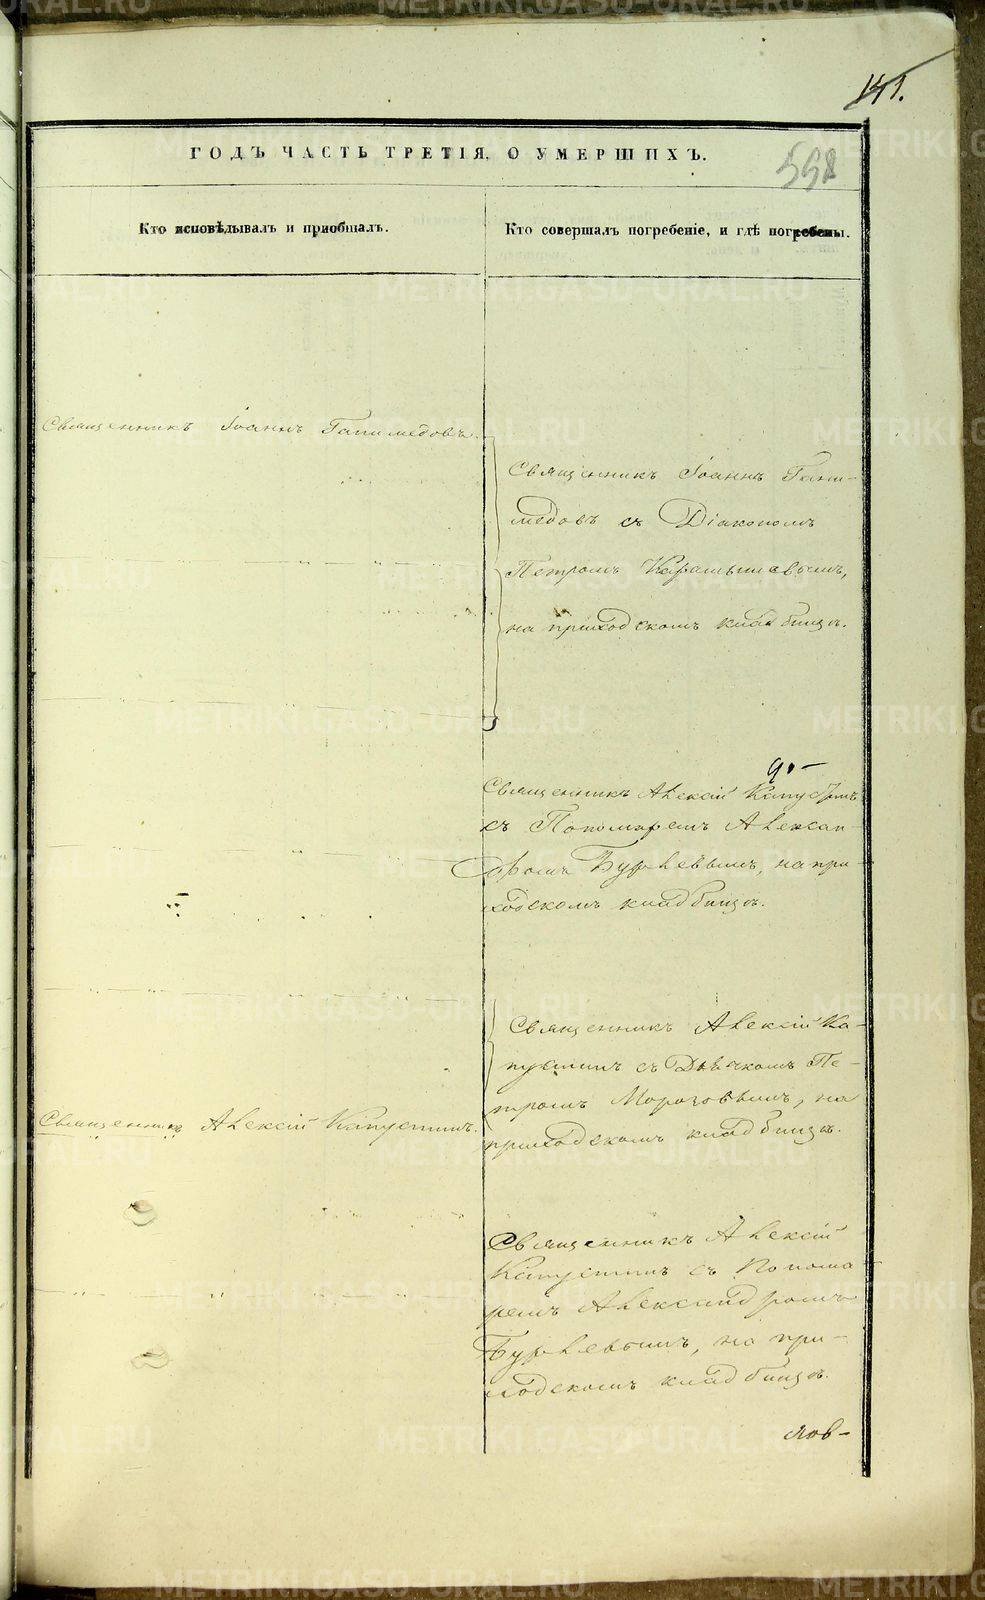 141.
ГОДЪ ЧАСТЬ ТРЕТІЯ, О УМЕРШИХЪ.
598
Кто исповѣдывалъ и пріобщалъ.
Кто совершалъ погребеніе, и гдѣ погребены.
Священникъ Іоаннъ Ганимедовъ.
Священникъ Іоаннъ Гани-
медовъ съ Діакономъ
Петромъ Карамышевымъ,
на приходскомъ кладбищѣ.
Священникъ Алексій Капустинъ
съ Пономаремъ Алексан-
дромъ Бурлевымъ, на при-
ходскомъ кладбищѣ.
Священникъ Алексій Ка-
пустинъ съ Дьячкомъ Пе-
тромъ Морозовымъ, на
приходскомъ кладбищѣ.
Священникъ Алексій Капустинъ.
Священникъ Алексій
Капустинъ съ Понома
ремъ Александромъ
Бурлевымъ, на при-
ходскомъ кладбищѣ.
лов-
METRIKI.GASO-URAL.RU